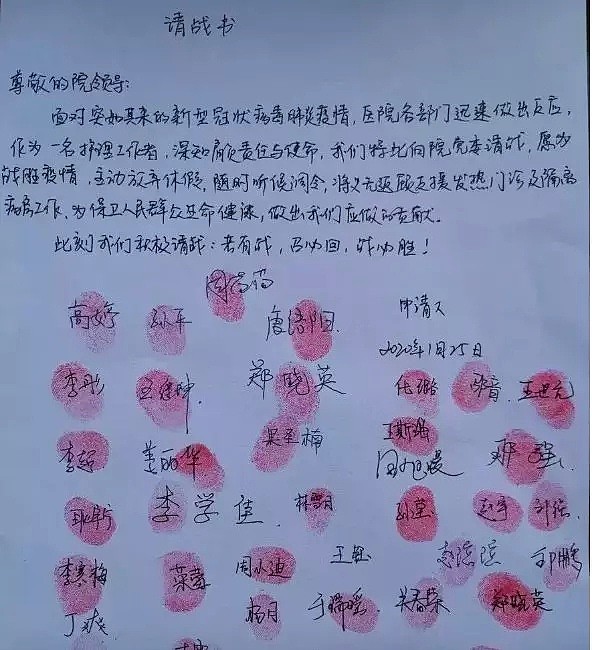 请战书
尊敬的院领导:
面对突如其来的新型冠状病毒肺炎疫情,医院各部门迅速做出反应,
作为一名护理工作者,深知肩负责任与使命,我们特此向院党委请战,愿为
战胜疫情,主动放弃休假,随时听候调令,将义无返顾支援发热门诊及隔离
病房工作,为保卫人民群众生命健康,做出我们应做的贡献。
此刻我们积极请战:若有战,召必回,战必胜!
申请人
高婷 孙平
2020年1月25日
李彤 郑晓英
李超 姜丽华 邓强
李学佳 林雪 赵宇
李寒梅 菜蓉 周小迪 王钰 邹鹏
丁爽 杨月 于瑞瑶 关春荣 郑晓英